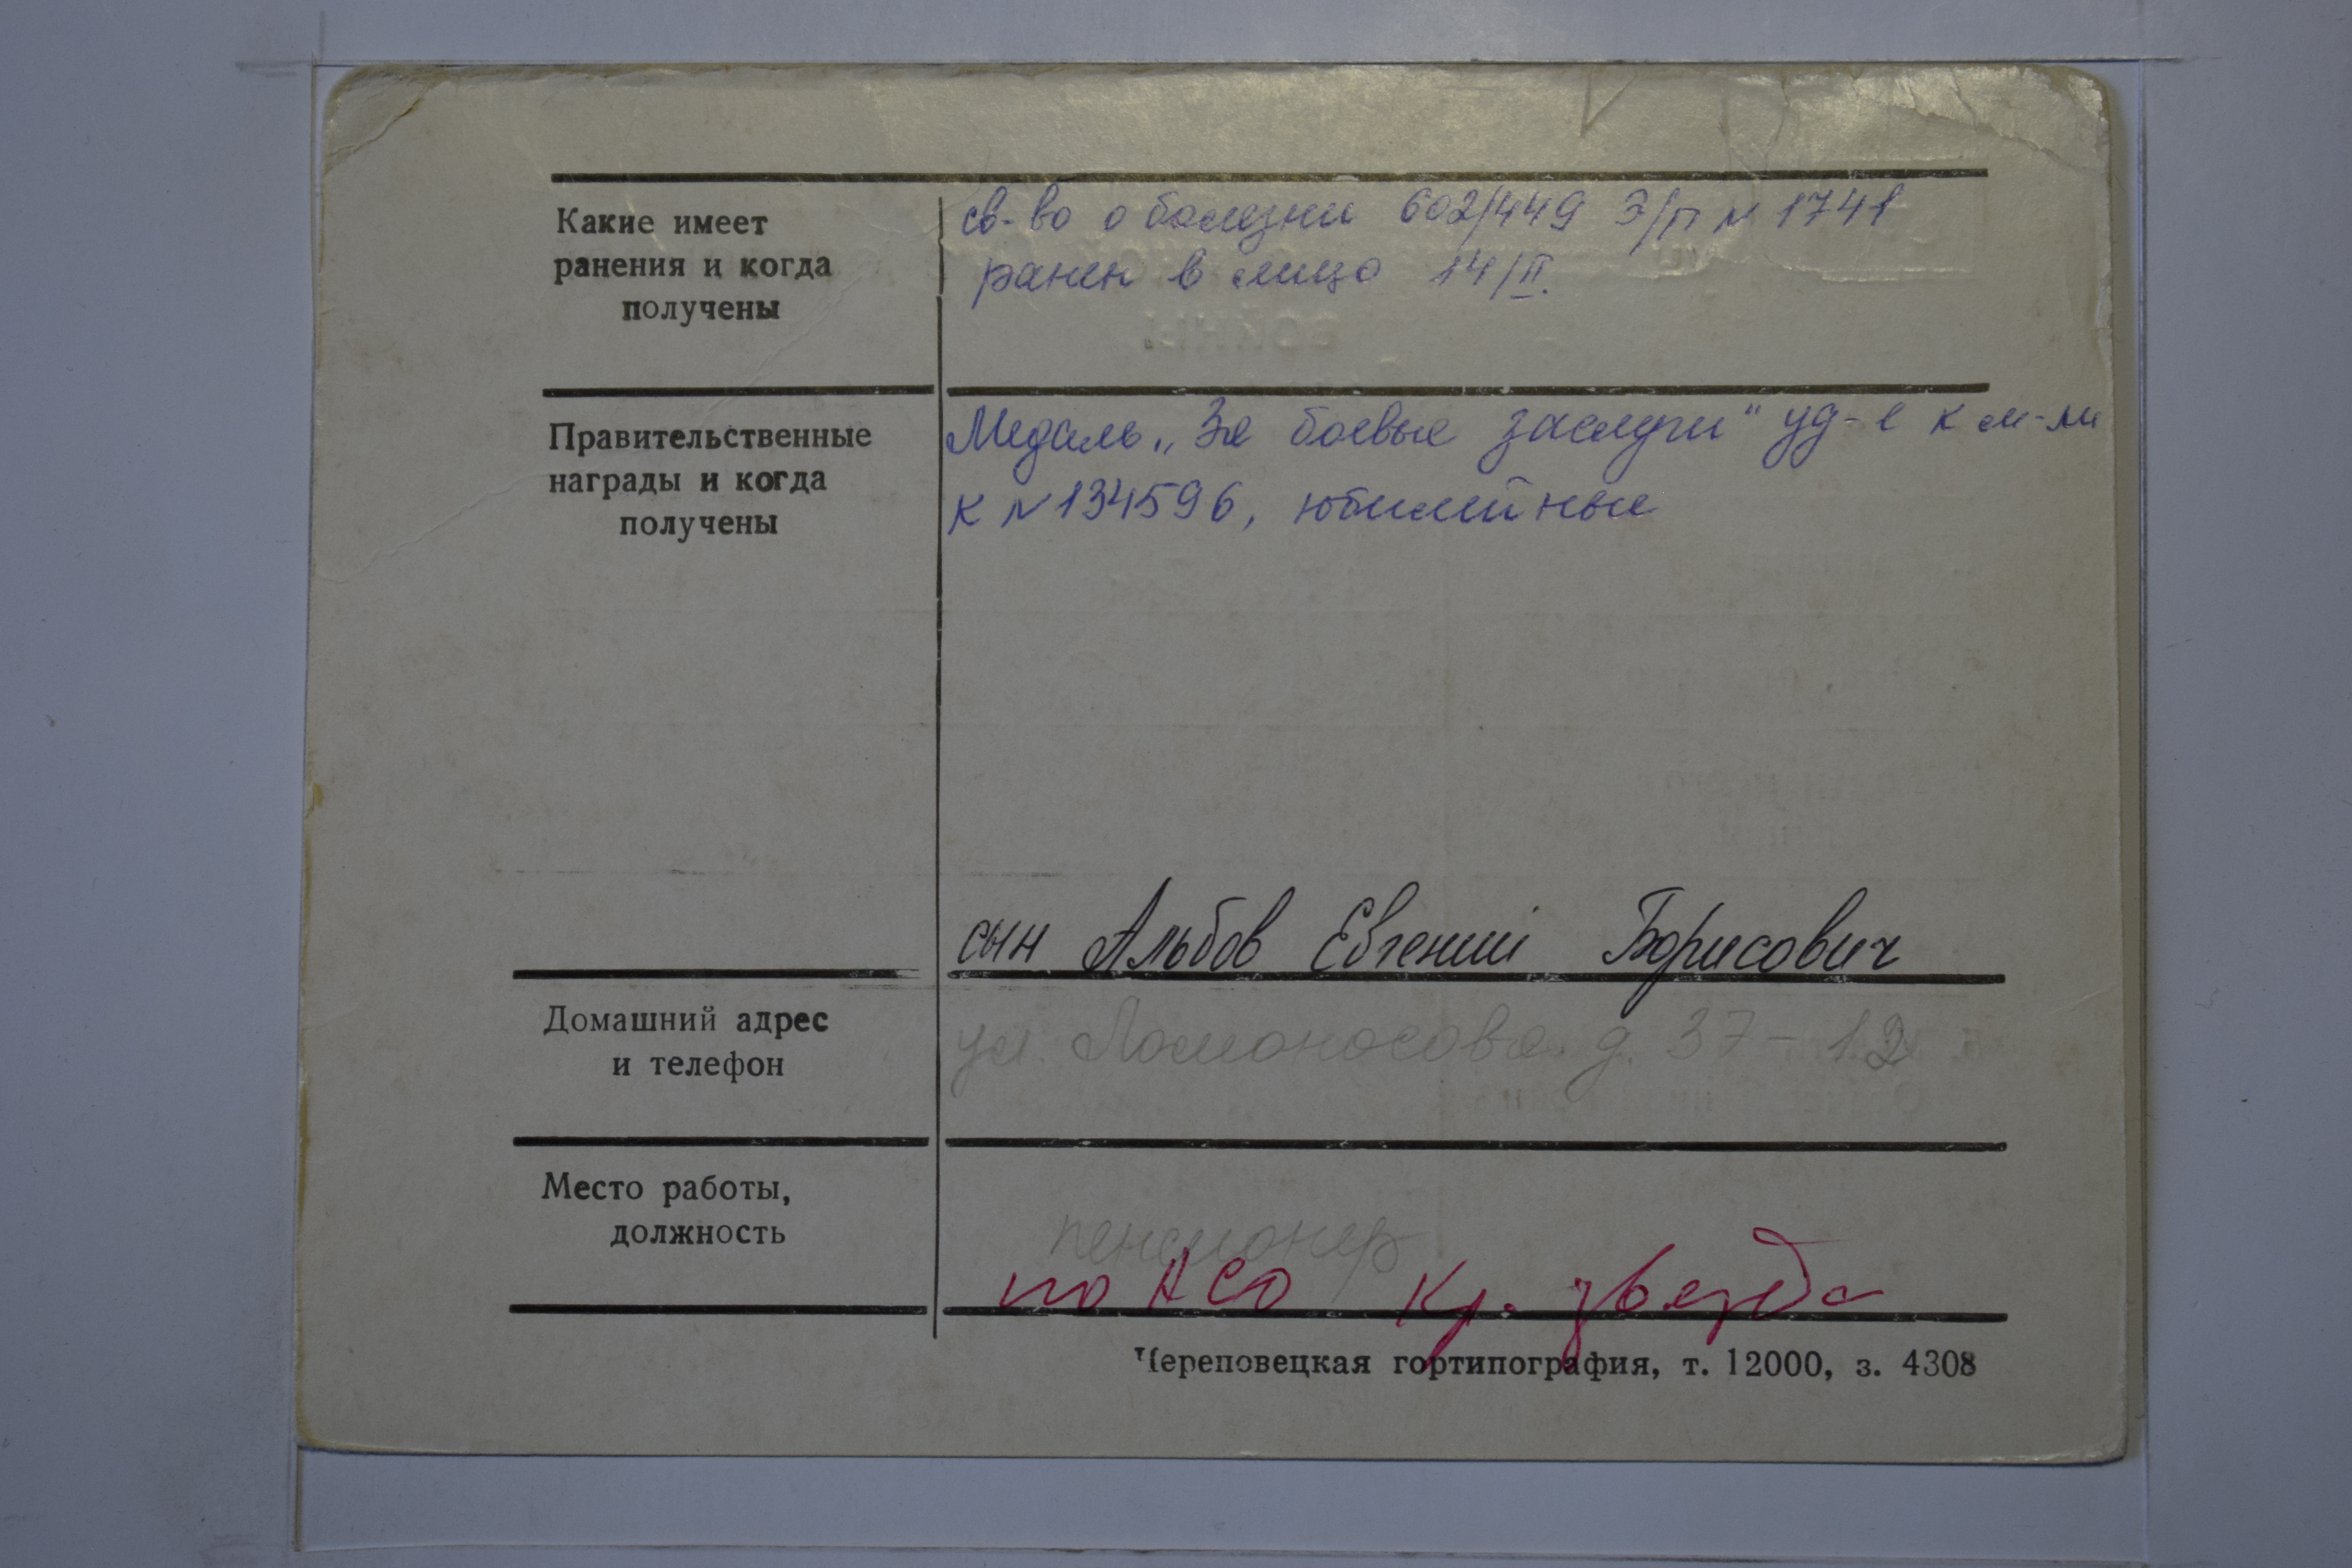 Какие имеет
ранения и когда
получены
св-во о болезни 602/449 Э/П N 1741
ранен в лицо 14/II.
Правительственные
награды и когда
получены
Медаль „За боевые заслуги" уд-е к м-ли
к N134596, юбилейные
сын Альбов Евгений Борисович
Домашний адрес
и телефон
ул. Ломоносова д. 37-12
Место работы,
должность
пенсионер
по АСО Кр. звезда
Череповецкая гортипография, т. 12000, з. 4308